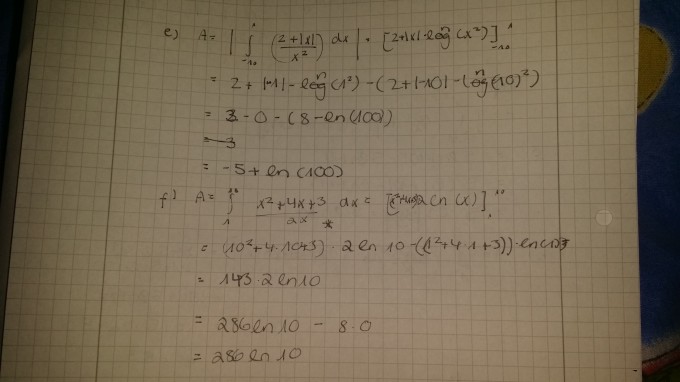 e) A= | ∫₋₁₀¹ (2+|x|/x²) dx | = [2+|x|-ln(x²)]₋₁₀¹
= 2+|-1|-ln(1²)-(2+|-10|-ln(10)²)
= 3-0-(8-ln(100))
= -5+ln(100)
f) A= ∫₁¹⁰ x²+4x+3/2x dx = 2ln(x)]₁¹⁰
= (10²+4·10+3)·2ln10-(1²+4·1+3))·ln(1)
= 143·2ln10
= 286ln10 - 8·0
= 286ln10